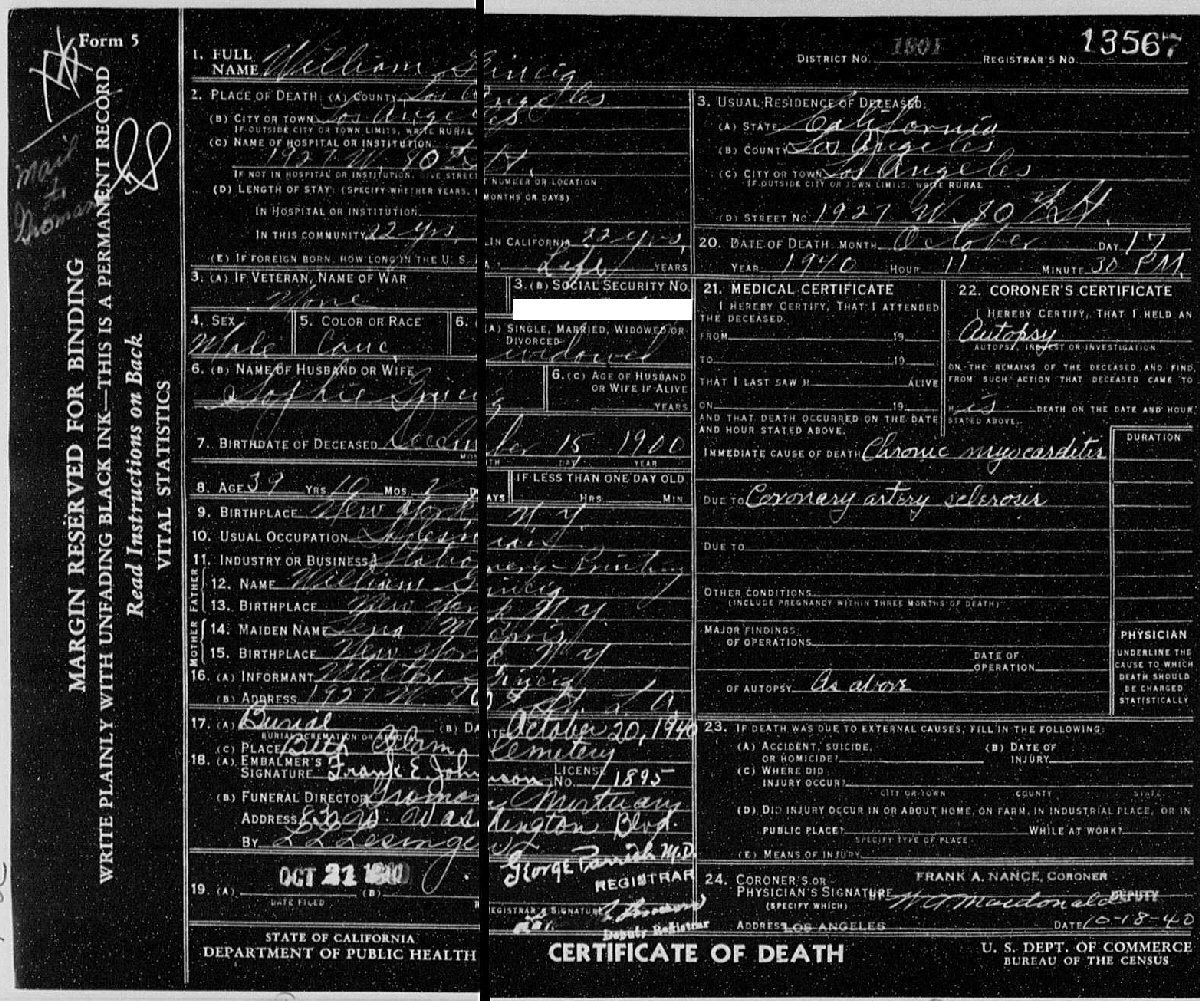 Form 5
MARGIN RESERVED FOR BINDING
WRITE PLAINLY WITH UNFADING BLACK INK—THIS IS A PERMANENT RECORD
Read Instructions on Back
VITAL STATISTICS
Mail to
DISTRICT NO. 1901 REGISTRAR'S NO. 13567
1. FULL NAME William
2. PLACE OF DEATH: (A) COUNTY Los Angeles
(B) CITY OR TOWN Los Angeles
IF OUTSIDE CITY OR TOWN LIMITS, WRITE RURAL
(C) NAME OF HOSPITAL OR INSTITUTION:
1927 W. 80th St.
IF NOT IN HOSPITAL OR INSTITUTION, GIVE STREET NUMBER OR LOCATION
(D) LENGTH OF STAY: (SPECIFY WHETHER YEARS, MONTHS OR DAYS)
IN HOSPITAL OR INSTITUTION
IN THIS COMMUNITY 22 yrs. IN CALIFORNIA 22 yrs.
(E) IF FOREIGN BORN, HOW LONG IN THE U. S. A. Life YEARS
3. (A) IF VETERAN, NAME OF WAR
None
3. (B) SOCIAL SECURITY NO.
4. SEX
Male
5. COLOR OR RACE
Cauc.
6. (A) SINGLE, MARRIED, WIDOWED OR DIVORCED
widowed
6. (B) NAME OF HUSBAND OR WIFE
Sophie
6. (C) AGE OF HUSBAND OR WIFE IF ALIVE
YEARS
7. BIRTHDATE OF DECEASED December 15 1900
DAY YEAR
8. AGE 39 YRS. 10 MOS. 2 DAYS
IF LESS THAN ONE DAY OLD
HRS. MIN.
9. BIRTHPLACE New York N.Y.
10. USUAL OCCUPATION Salesman
11. INDUSTRY OR BUSINESS Stationery-Printing
FATHER
12. NAME William
13. BIRTHPLACE New York N.Y.
MOTHER
14. MAIDEN NAME Lena
15. BIRTHPLACE New York N.Y.
16. (A) INFORMANT
(B) ADDRESS 1927 W. 80 St. L.A.
17. (A) Burial (B) DATE October 20, 1940
BURIAL, CREMATION OR
(C) PLACE Beth Olam Cemetery
18. (A) EMBALMER'S SIGNATURE Frank E. Johnson LICENSE NO. 1895
(B) FUNERAL DIRECTOR Groman Mortuary
ADDRESS Washington Blvd.
BY
19. (A) OCT 21 1940 (B) George Parrish M.D.
REGISTRAR
DATE FILED REGISTRAR'S SIGNATURE
Deputy Registrar
3. USUAL RESIDENCE OF DECEASED:
(A) STATE California
(B) COUNTY Los Angeles
(C) CITY OR TOWN Los Angeles
IF OUTSIDE CITY OR TOWN LIMITS, WRITE RURAL
(D) STREET NO. 1927 W. 80th St.
20. DATE OF DEATH: MONTH October DAY 17
YEAR 1940 HOUR 11 MINUTE 30 P.M.
21. MEDICAL CERTIFICATE
I HEREBY CERTIFY, THAT I ATTENDED THE DECEASED.
FROM 19
TO 19
THAT I LAST SAW H ALIVE
ON 19
AND THAT DEATH OCCURRED ON THE DATE AND HOUR STATED ABOVE.
22. CORONER'S CERTIFICATE
I HEREBY CERTIFY, THAT I HELD AN
Autopsy
AUTOPSY, INQUEST OR INVESTIGATION
ON THE REMAINS OF THE DECEASED AND FIND FROM SUCH ACTION THAT DECEASED CAME TO
H is DEATH ON THE DATE AND HOUR STATED ABOVE.
IMMEDIATE CAUSE OF DEATH Chronic myocarditis
DURATION
DUE TO Coronary artery sclerosis
DUE TO
OTHER CONDITIONS
(INCLUDE PREGNANCY WITHIN THREE MONTHS OF DEATH)
MAJOR FINDINGS:
OF OPERATIONS
DATE OF OPERATION
OF AUTOPSY As above
PHYSICIAN
UNDERLINE THE CAUSE TO WHICH DEATH SHOULD BE CHARGED STATISTICALLY
23. IF DEATH WAS DUE TO EXTERNAL CAUSES, FILL IN THE FOLLOWING:
(A) ACCIDENT, SUICIDE, OR HOMICIDE?
(B) DATE OF INJURY
(C) WHERE DID INJURY OCCUR?
CITY OR TOWN COUNTY STATE
(D) DID INJURY OCCUR IN OR ABOUT HOME, ON FARM, IN INDUSTRIAL PLACE, OR IN
PUBLIC PLACE? WHILE AT WORK?
SPECIFY TYPE OF PLACE
(E) MEANS OF INJURY
24. CORONER'S OR PHYSICIAN'S SIGNATURE
(SPECIFY WHICH)
FRANK A. NANCE, CORONER
BY W A Macdonald DEPUTY
ADDRESS LOS ANGELES DATE 10-18-40
STATE OF CALIFORNIA
DEPARTMENT OF PUBLIC HEALTH
CERTIFICATE OF DEATH
U. S. DEPT. OF COMMERCE
BUREAU OF THE CENSUS